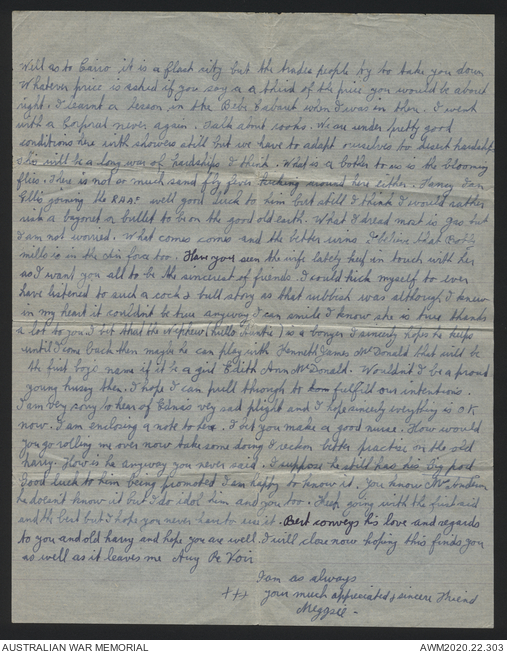 Well as to Cairo it is a flash city but the trades people try to take you down
Whatever price is asked if you say a a third of the price you would be about
right. I learnt a lesson in the Bebe Cabaret when I was in there. I went
with a Corporal never again. Talk about rooks. We are under pretty good
conditions here with showers still but we have to adapt ourselves to desert hardships
this will be a long war of hardships I think. What is a bother to us is the blooming
flies. There is not so much sand fly fever kicking around here either. Fancy Ian
Ellis joining the RAAF well good luck to him but still I think I would rather
risk a bayonet or bullet to on the good old earth. What I dread most is gas but
I am not worried. What comes comes and the better wins. I believe that
mills is in the air force too. Have you seen the wife lately keep in touch with her
as I want you all to be the sincerest of friends. I could kick myself to ever
have listened to such a cock & bull story as that rubbish was although I knew
in my heart it couldn't be true anyway I can smile I know she is true thanks
a lot to you. But that the Nephew (hullo Auntie) is a bonzer I sincerely hope he keeps
until I come back then maybe he can play with Kenneth James McDonald that will be
the first boys name if it be a girl Edith Ann McDonald. Wouldn't I be a proud
young husey then. I hope I can pull through to fulfill our intentions.
I am very sorry to hear of Edna's very sad plight and I hope sincerely everything is O.K
now. I am enclosing a note to her. I bet you make a good nurse. How would
you go rolling me over now take some doing I reckon better practise on the old
harry. How is he anyway you never said. I suppose he still has his big post
Good luck to him being promoted I am happy to know it. You know Mr
he doesn't know it but I do idol him and you too. Keep going with the first aid
and the best but I hope you never have to use it. Bert conveys his love and regards
to you and old harry and hope you are well. I will close now hoping this finds you
as well as it leaves me Au Re Voir
I am as always
+++ your much appreciated & sincere Friend
Meggsie -
AUSTRALIAN WAR MEMORIAL
AWM2020.22.303